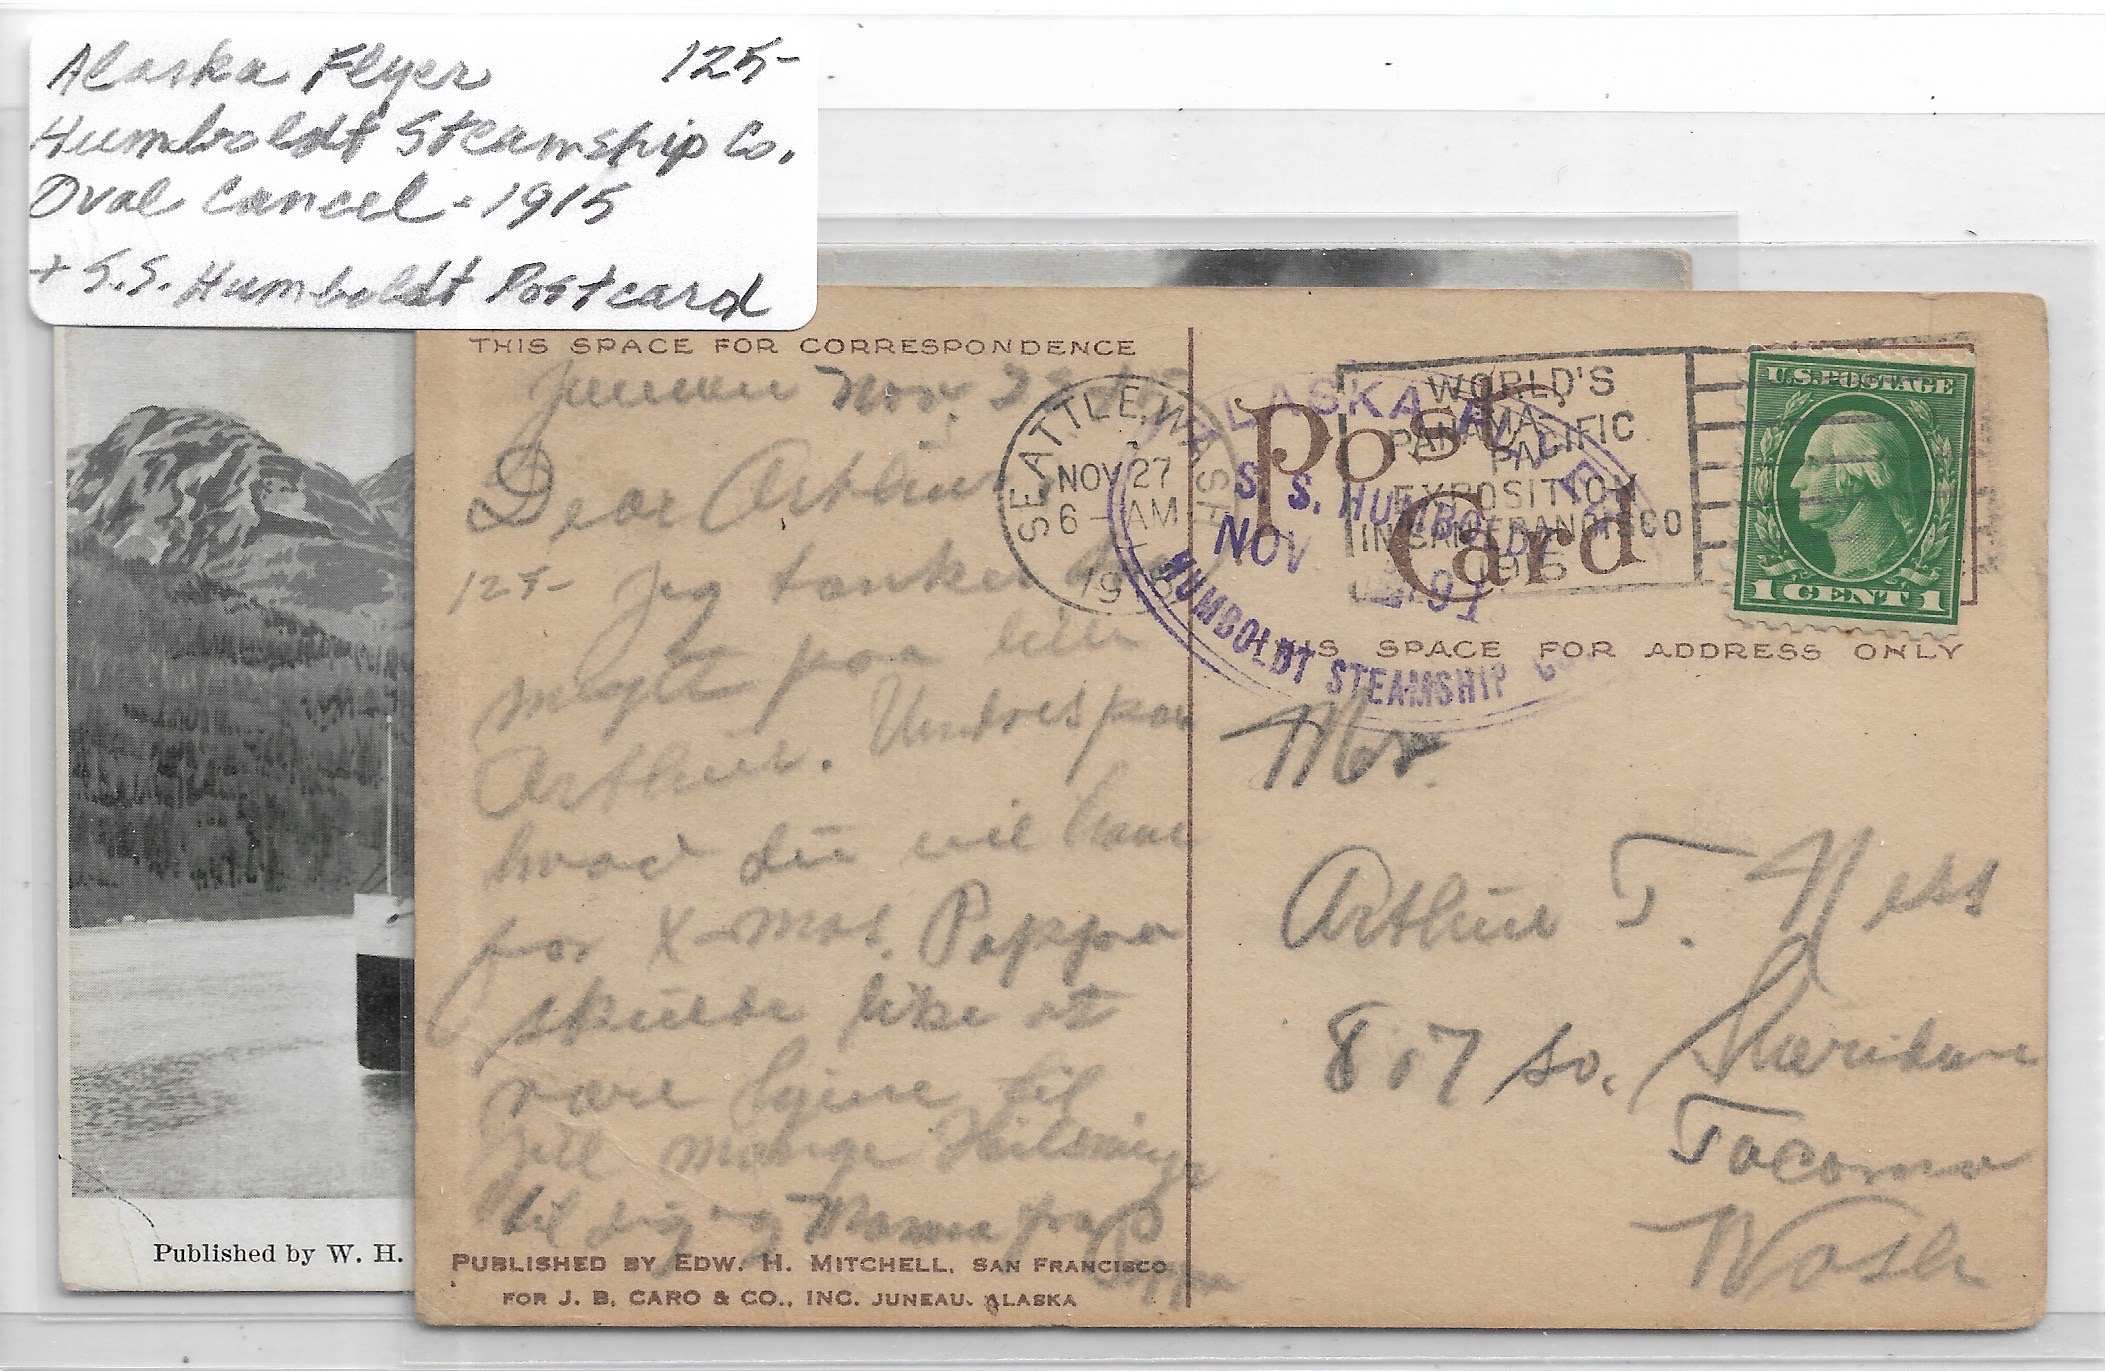 Alaska Flyer 125-
Humboldt Steamship Co.
Oval Cancel - 1915
+ S.S. Humboldt Postcard
THIS SPACE FOR CORRESPONDENCE
Juneau Nov. 2
Dear Arthur
125- Jeg tænker
meget paa lille
Arthur. Undres paa
hvad du vil have
for X-mas. Pappa
skulde like at
være hjeme til
Jull mange Hilsninge
til dig og Mamma fra
Pappa
PUBLISHED BY EDW. H. MITCHELL, SAN FRANCISCO
FOR J. B. CARO & CO., INC. JUNEAU, ALASKA
SEATTLE, WASH.
NOV 27
6 - AM
19
WORLD'S
PANAMA
PACIFIC
EXPOSITION
IN SAN FRANCISCO
1915
ALASKA FLYER
S. S. HUMBOLDT
NOV
HUMBOLDT STEAMSHIP CO.
Post
Card
U.S. POSTAGE
1 CENT 1
THIS SPACE FOR ADDRESS ONLY
Mr.
Arthur T. Ness
807 So. Sheridan
Tacoma
Wash
Published by W. H.